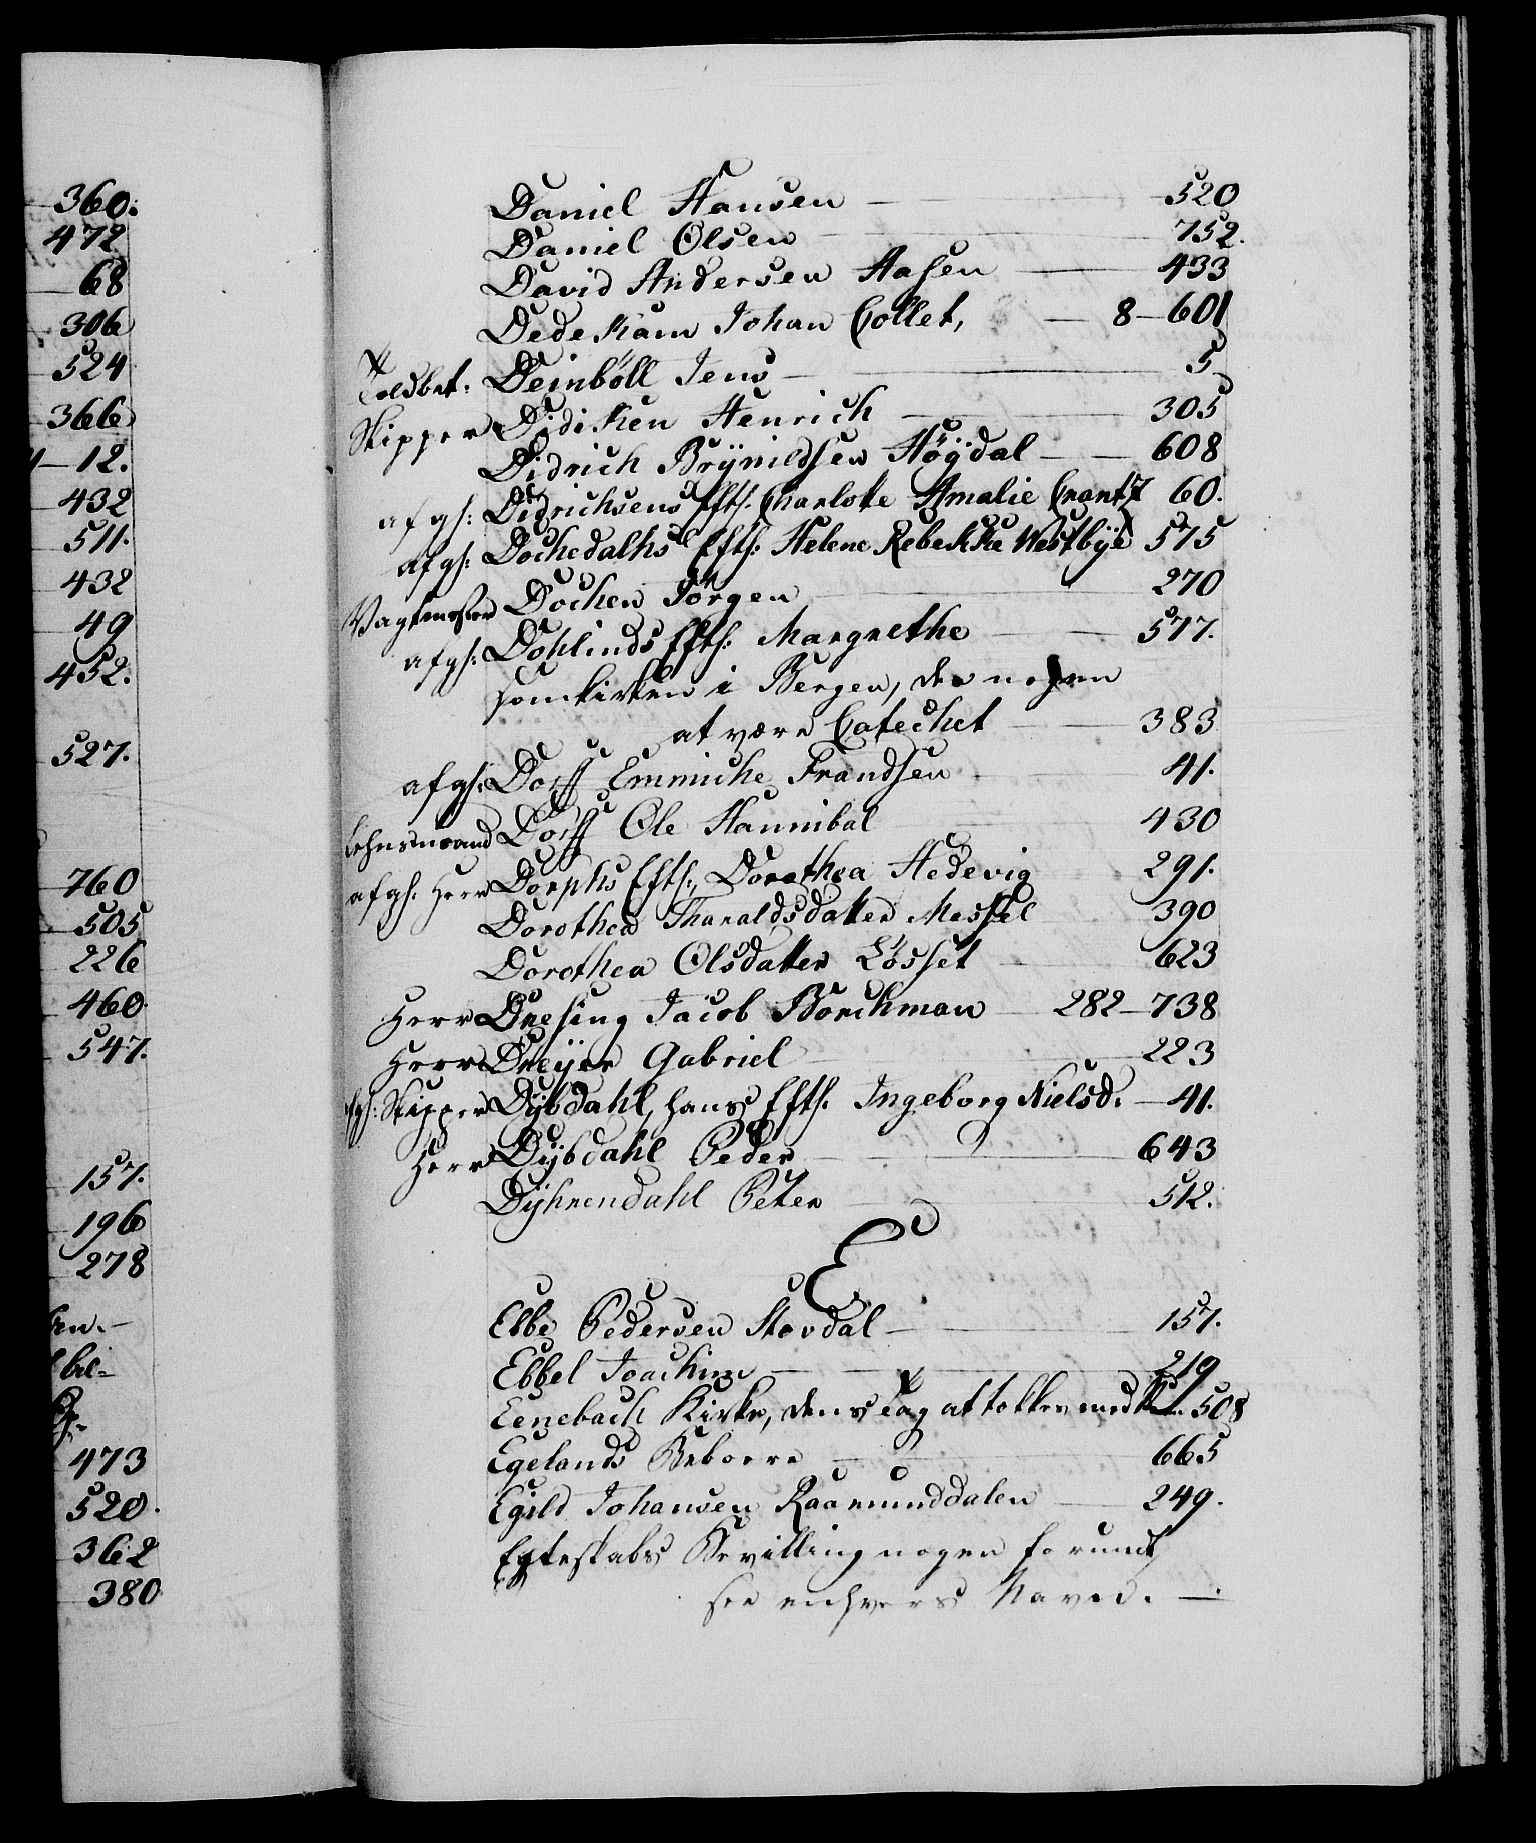 360.
472
68
306
524
366
12.
432
511.
432
49
452.
527.
760
505
226
460.
547.
157.
196
278
473
520.
362
380
Daniel Hansen — 520
Daniel Olsen — 752.
David Andersen Aasen — 433
Dedekam Johan Collet, — 8—601
Toldbet: Deinböll Jens — 5
Skipper Didiken Henrich — 305
Didrich Brÿnildsen Högdal — 608
afg: Didrichsens Eft: Charlotte Amalie Crantz 60.
afg: Dochedalhs Eft: Helene Rebekka Westbÿe 575
Vagtmester Dochen Jörgen — 270
afg: Dohlinds Eft: Margrethe — 577.
Domkirken i Bergen, dens
at være Catechet — 383
afg: Dorff Emmiche Frandsen 41.
Lehnsmand Dorff Ole Hannibal 430
afg: Herr Dorphs Eft:, Dorothea Hedevig 291.
Dorothea Tharaldsdatter Messel 390
Dorothea Olsdatter Lösset — 623
Herr Dresing Jacob Borchman — 282—738
Herr Dreÿer Gabriel — 223
afg: Skipper Dÿbdahl, Hans Eft: Ingeborg Nielsd. — 41.
Herr Dÿbdahl Peder — 643
Dÿhrendahl Peter — 512.
E.
Ebbe Pedersen Stovdal — 157.
Ebbel Joachim — 219
Eenebach Kirke, dens Tag at tækkes med 508
Egelands Beboere — 665
Egild Johansen Raamunddalen — 249.
Egteskabs Bevilling nogen forundt
see enhvers Navne. —